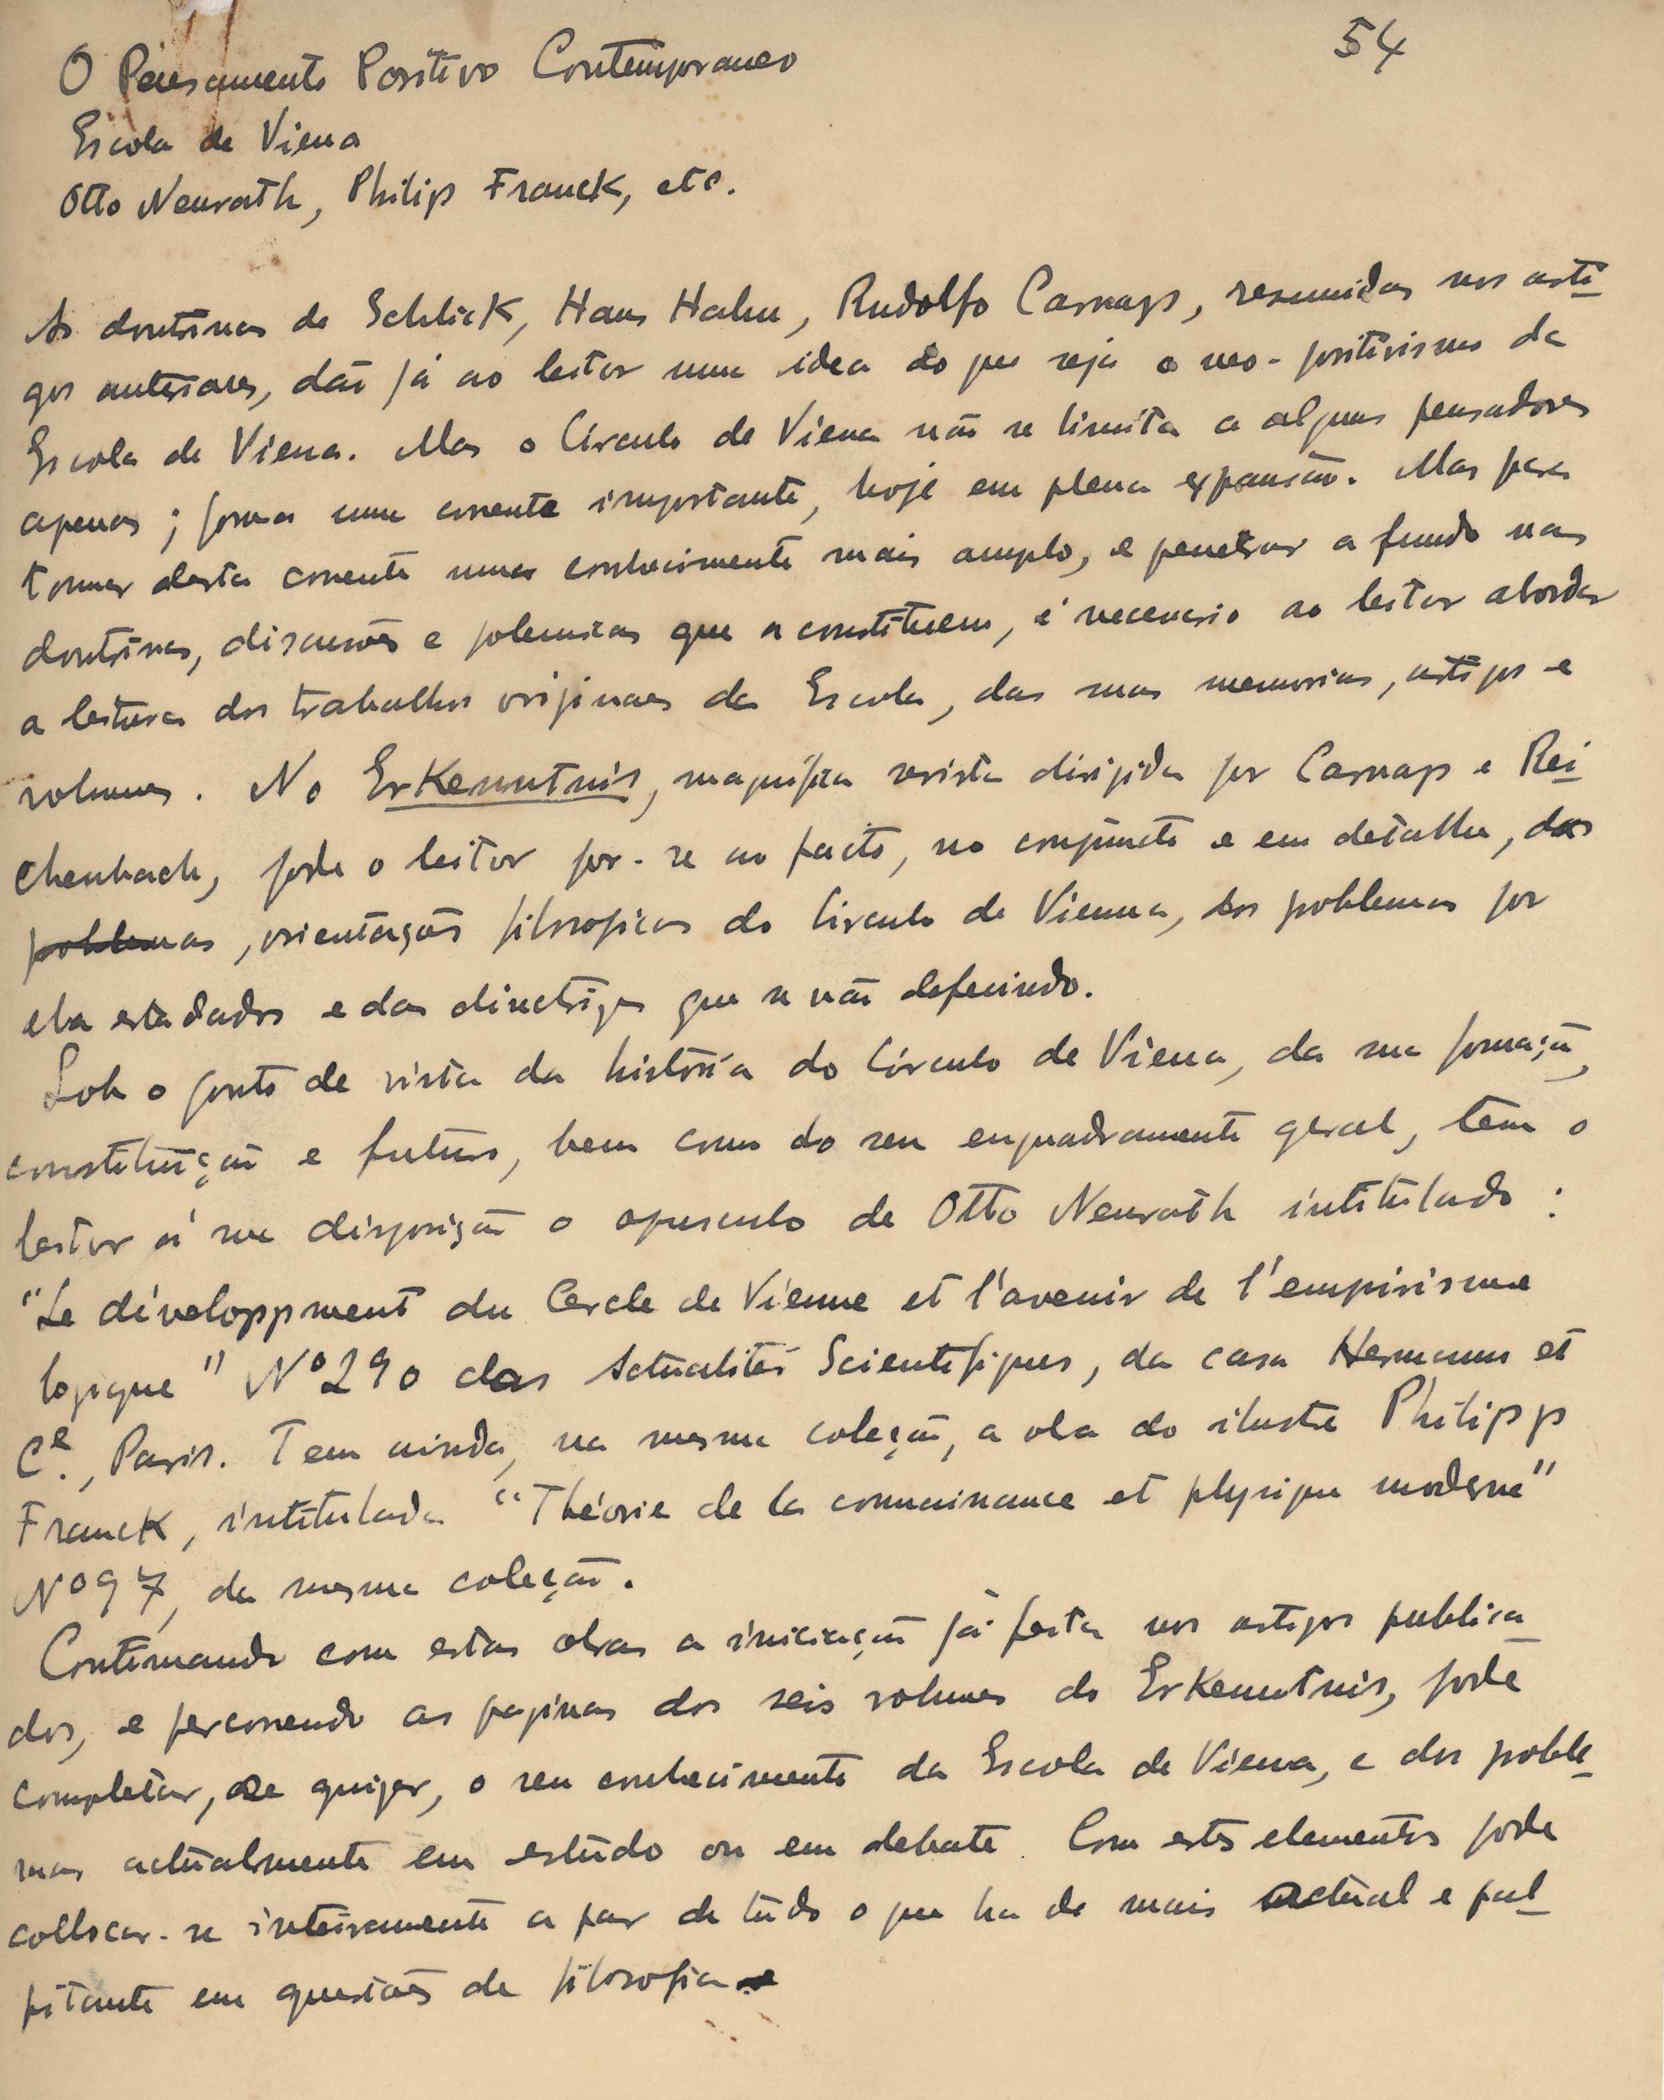 54
O Pensamento Positivo Contemporaneo
Escola de Viena
Otto Neurath, Philip Franck, etc.
As doutrinas de Schlick, Hans Hahn, Rudolfo Carnap, resumidas nos arti-
gos anteriores, dão já ao leitor uma idea do que seja o neo-positivismo da
Escola de Viena. Mas o Círculo de Viena não se limita a alguns pensadores
apenas; forma uma corrente importante, hoje em plena expansão. Mas para
tomar desta corrente umas conhecimento mais amplo, e penetrar a fundo nas
doutrinas, discussões e polemicas que a constituem, é necessario ao leitor abordar
a leitura dos trabalhos originaes da Escola, das suas memorias, artigos e
volumes. No Erkenntnis, magnífica revista dirigida por Carnap e Rei-
chenbach, pode o leitor por-se ao facto, no conjuncto e em detalhe, das
problemas, orientações filosoficas do Circulo de Vienna, dos problemas por
ela estudados e das directrizes que se vão defenindo.
Sob o ponto de vista da história do Círculo de Viena, da sua formação,
constituição e futuro, bem como do seu enquadramento geral, tem o
leitor á sua disposição o opusculo de Otto Neurath intitulado:
"Le développment du Cercle de Vienne et l'avenir de l'empirisme
logique" Nº 290 das Actualités Scientifiques, da casa Hermann et
Cª., Paris. Tem ainda, na mesma coleção, a obra do ilustre Philipp
Franck, intitulada "Théorie de la connaissance et physique moderne"
Nº 97, da mesma coleção.
Continuando com estas obras a iniciação já feita nos artigos publica-
dos, e percorrendo as paginas dos seis volumes do Erkenntnis, pode
completar, se quizer, o seu conhecimento da Escola de Viena, e dos proble-
mas actualmente em estudo ou em debate. Com estes elementos pode
collocar-se inteiramente a par de tudo o que ha de mais actual e pal-
pitante em questões de filosofia